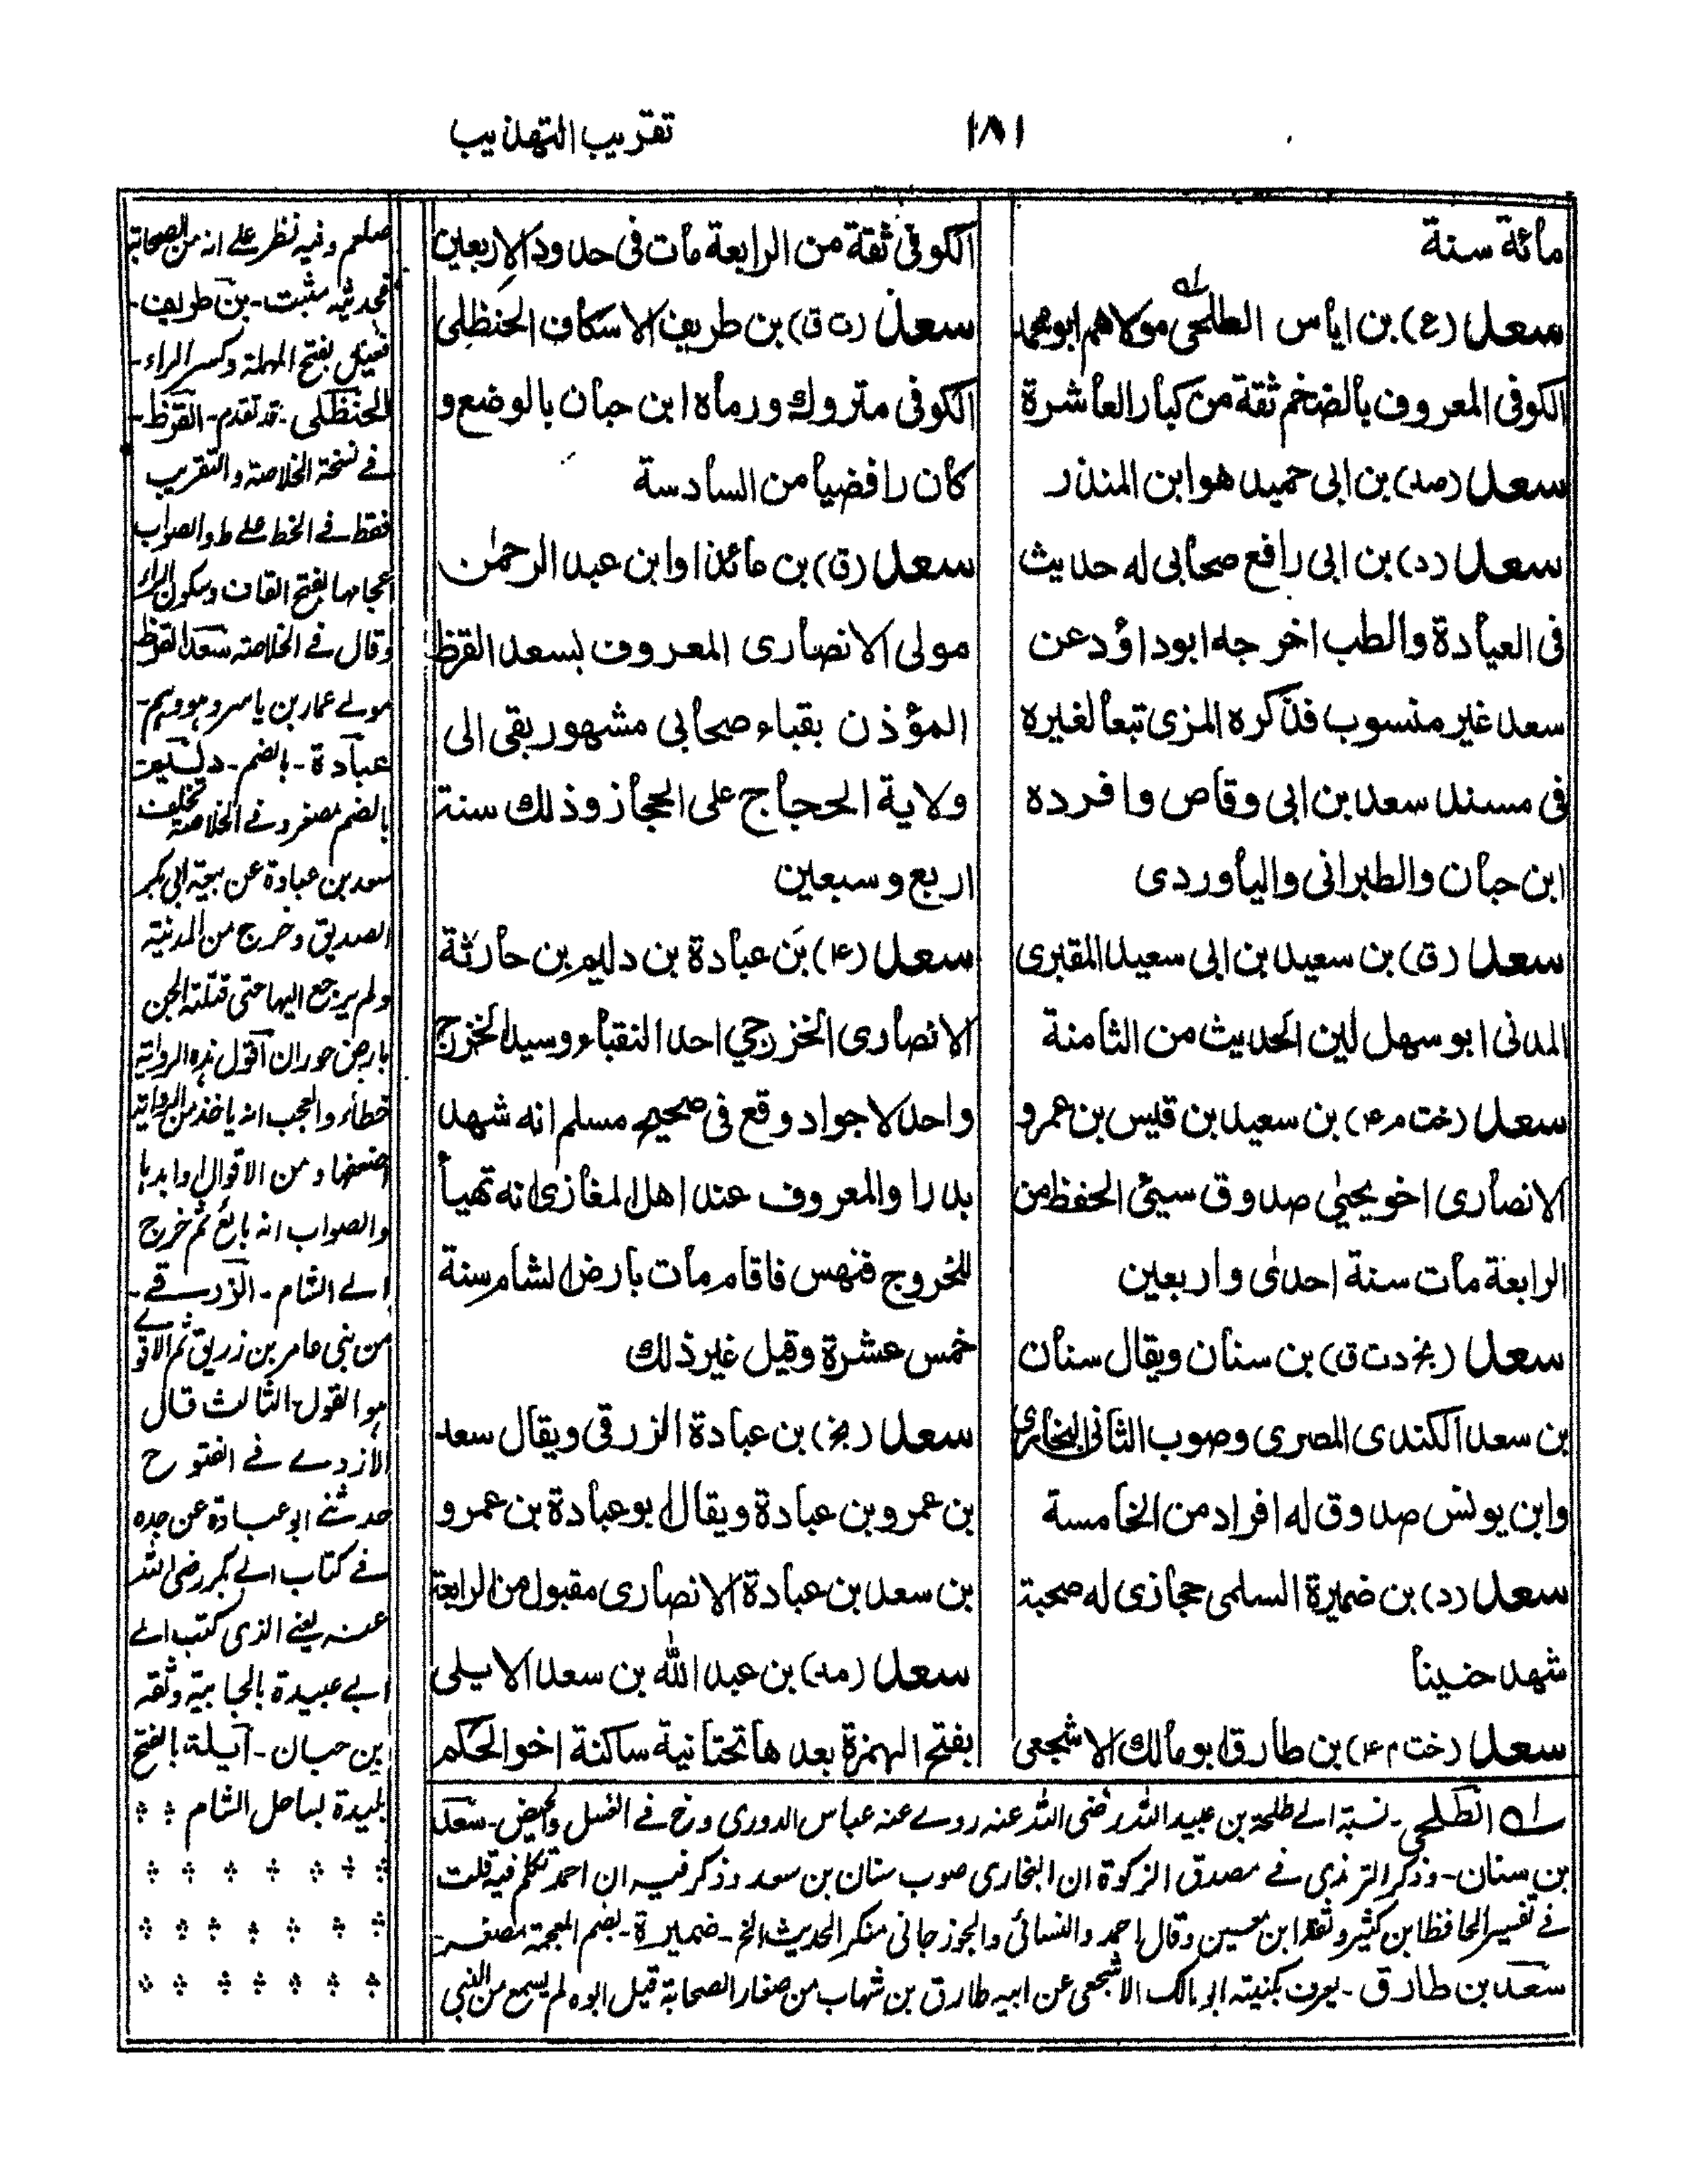 تقريب التهذيب
١٨١
مائة سنة
سعد (ع) بن اياس الطلحى مولاهم ابو محمد
الكوفى المعروف بالضخم ثقة من كبار العاشرة
سعد (صد) بن ابى حميد هو ابن المنذر
سعد (د) بن ابى رافع صحابى له حديث
فى العيادة والطب اخرجه ابوداؤد عن
سعد غير منسوب فذكره المزى تبعا لغيره
فى مسند سعد بن ابى وقاص وافرده
ابن حبان والطبرانى والباوردى
سعد (ق) بن سعيد بن ابى سعيد المقبرى
المدنى ابو سهل لين الحديث من الثامنة
سعد (خت م ۴) بن سعيد بن قيس بن عمرو
الانصارى اخو يحيى صدوق سيئ الحفظ من
الرابعة مات سنة احدى واربعين
سعد (بخ د ت ق) بن سنان ويقال سنان
بن سعد الكندى المصرى وصوب الثانى البخارى
وابن يونس صدوق له افراد من الخامسة
سعد (د) بن ضميرة السلمى حجازى له صحبة
شهد حنينا
سعد (خت م ۴) بن طارق ابو مالك الاشجعى
الكوفى ثقة من الرابعة مات فى حدود الاربعين
سعد (ت ق) بن طريف الاسكاف الحنظلى
الكوفى متروك ورماه ابن حبان بالوضع و
كان رافضيا من السادسة
سعد (ق) بن عائذ او ابن عبد الرحمٰن
مولى الانصارى المعروف بسعد القرظ
المؤذن بقباء صحابى مشهور بقى الى
ولاية الحجاج على الحجاز وذلك سنة
اربع وسبعين
سعد (۴) بن عبادة بن دليم بن حارثة
الانصارى الخزرجي احد النقباء وسيد الخزرج
واحد الاجواد وقع فى صحيح مسلم انه شهد
بدرا والمعروف عند اهل المغازى انه تهيأ
للخروج فنهس فاقام مات بارض الشام سنة
خمس عشرة وقيل غير ذلك
سعد (بخ) بن عبادة الزرقى ويقال سعد
بن عمرو بن عبادة ويقال ابو عبادة بن عمرو
بن سعد بن عبادة الانصارى مقبول من الرابعة
سعد (مد) بن عبد الله بن سعد الايلى
بفتح الهمزة بعدها تحتانية ساكنة اخو الحكم
له الطلحى - نسبة الے طلحة بن عبيد الله رضى الله عنه روے عنه عباس الدورى ورخ فے الغسل والحيض - سعد
بن سنان - وذكر الترمذى فے مصدق الزكوة ان البخارى صوب سنان بن سعد وذكر فيه ان احمد تكلم فيه قلت
فے تفسير الحافظ ابن كثير وثقه ابن معين وقال احمد والنسائى والجوزجانى منكر الحديث الخ - ضميرة - بضم المعجمة مصغر -
سعد بن طارق - يعرف بكنيته ابو مالك الاشجعى عن ابيه طارق بن شهاب من صغار الصحابة قيل ابوه لم يسمع من النبى
صلعم وفيه نظر علے انه من الصحابة
فحديثه مثبت - بن طريف -
بفتح المهملة وكسر الراء -
الحنظلى - قد تقدم - القرظ -
فے نسخة الخلاصة والتقريب
فقط فے الخط علے ط والصواب
اعجامها بفتح القاف وسكون الراء
وقال فے الخلاصة سعد القرظ
مولے عمار بن ياسر وهو وهم -
عبادة - بالضم - دليم
بالضم مصغر وفے الخلاصة تخلف
سعد بن عبادة عن بيعة ابى بكر
الصديق وخرج من المدينة
ولم يرجع اليها حتى قتلته الجن
بارض حوران اقول هذه الرواية
خطاء والعجب انه ياخذ من الرواية
اضعفها ومن الاقوال ابدها
والصواب انه بايع ثم خرج
الے الشام - الزرقے -
من بنى عامر بن زريق ثم الاقو
هو القول الثالث قال
الازدے فے الفتوح
حدثنے ابو عبادة عن جده
فے كتاب ابے بكر رضى الله
عنه يعنے الذى كتب الے
ابے عبيدة بالجابية وثقه
ابن حبان - ايلة بالفتح
بليدة بساحل الشام